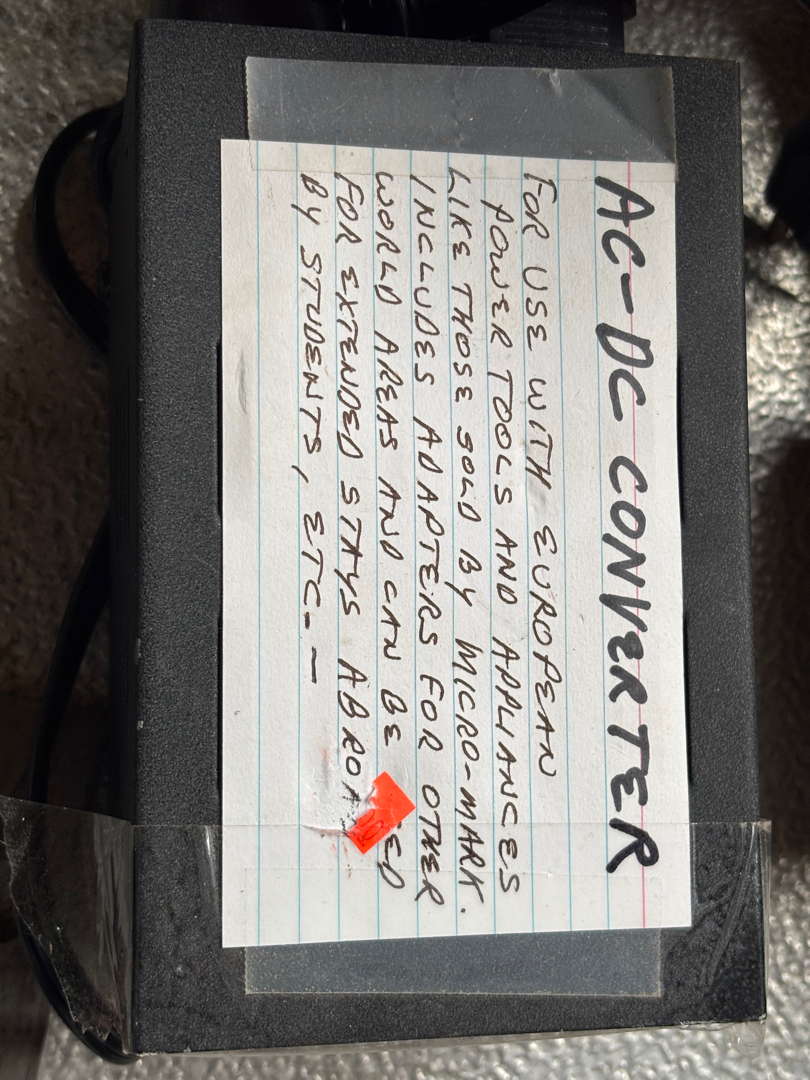 AC-DC CONVERTER
FOR USE WITH EUROPEAN
POWER TOOLS AND APPLIANCES
LIKE THOSE SOLD BY MICRO-MARK.
INCLUDES ADAPTERS FOR OTHER
WORLD AREAS AND CAN BE
FOR EXTENDED STAYS
BY STUDENTS, ETC. -